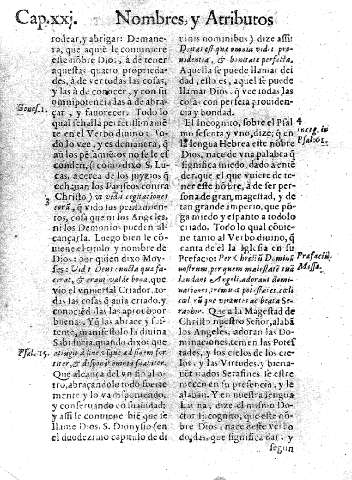 Cap.xxj. Nombres, y Atributos
rodear, y abrigar: Demanera,
que aquiē le conuiniere
este nõbre Dios, à de tener
aquestas quatro propriedades,
à de ver todas las cosas,
y las à de conocer, y con su
omnipotencia las à de abraçar,
y fauorecer. Todo lo
qual se halla
en el Verbo diuino: todo
lo vee, y es de manera, q̃
aũ los pẽsamiẽtos no se le escõden,
si como dixo S. Lucas,
acerca de los juyzios q̃
echauan los Fariseos contra
Christo) vt vidit cogitationes
eorũ, q̃ vido los pensamientos,
cosa que ni los Angeles,
ni los Demonios pueden alcançarla.
Luego bien le conuiene
el titulo y nombre de
Dios: por quien dixo Moyses:
Vidit Deus cuncta quæ fecerat,
& erant valde bona, que
vio el vniuersal Criador, todas
las cosas q̃ auia criado, y
conociẽdolas las aprobo por
buenas. Y q̃ las abrace y sustente,
manifiestolo la diuina
Sabiduria, quando dixo que
attingit à fine vsque ad finem fortiter,
& disponit omnia suauiter.
Que alcança del vn fin al otro,
abraçandole todo fuertemente
y lo va disponiendo,
y conseruando cõ suauidad;
y assi le conuiene biẽ que se
llame Dios. S. Dionysio (en
el duodezimo capitulo de diuinis
nominibus) dize assi:
Deitas est quæ omnia vidit prouidentia,
& bonitate perfecta.
Aquella se puede llamar deidad,
ello es, aquel se puede
llamar Dios, q̃ vee todas las
cosas con perfeta prouidencia
y bondad.
El incognito, sobre el Psalmo
sesenta y vno, dize; q̃ en
la lengua Hebrea este nõbre
Dios, nace de vna palabra q̃
significa miedo, dado a entẽder,
que el que vuiere de tener
este nõbre, à de ser persona
de gran magestad, y de
tan grande imperio, que põga
miedo y espanto a todo lo
criado. Todo lo qual conuiene
tanto al Verbo diuino, q̃
canta del la Iglesia en su
Prefacio: Per Christũ Dominũ
nostrum, per quem maiestatẽ tuã
laudant Angeli, adorant dominationes,
tremũt potestates, cæli
cælorũ que virtutes ac beata Seraphin.
Que a la Magestad de
Christo nuestro Señor, alabã
los Angeles, adoran las Dominaciones,
temen las Potestades,
y los cielos de los cielos,
y las Virtudes, y bienauenturados
Serafines se estremecen
en su presencia, y le
alaban. Y en nuestra lengua
Latina, dize el mismo Doctor
Incognito, que este nõbre
Dios, nace deste verbo
do, das, que significa dar, y
segun
Genes. 1.
3
Psal. 15.
4
Incog. in
Psal. 61.
Prefaciũ
Missæ.